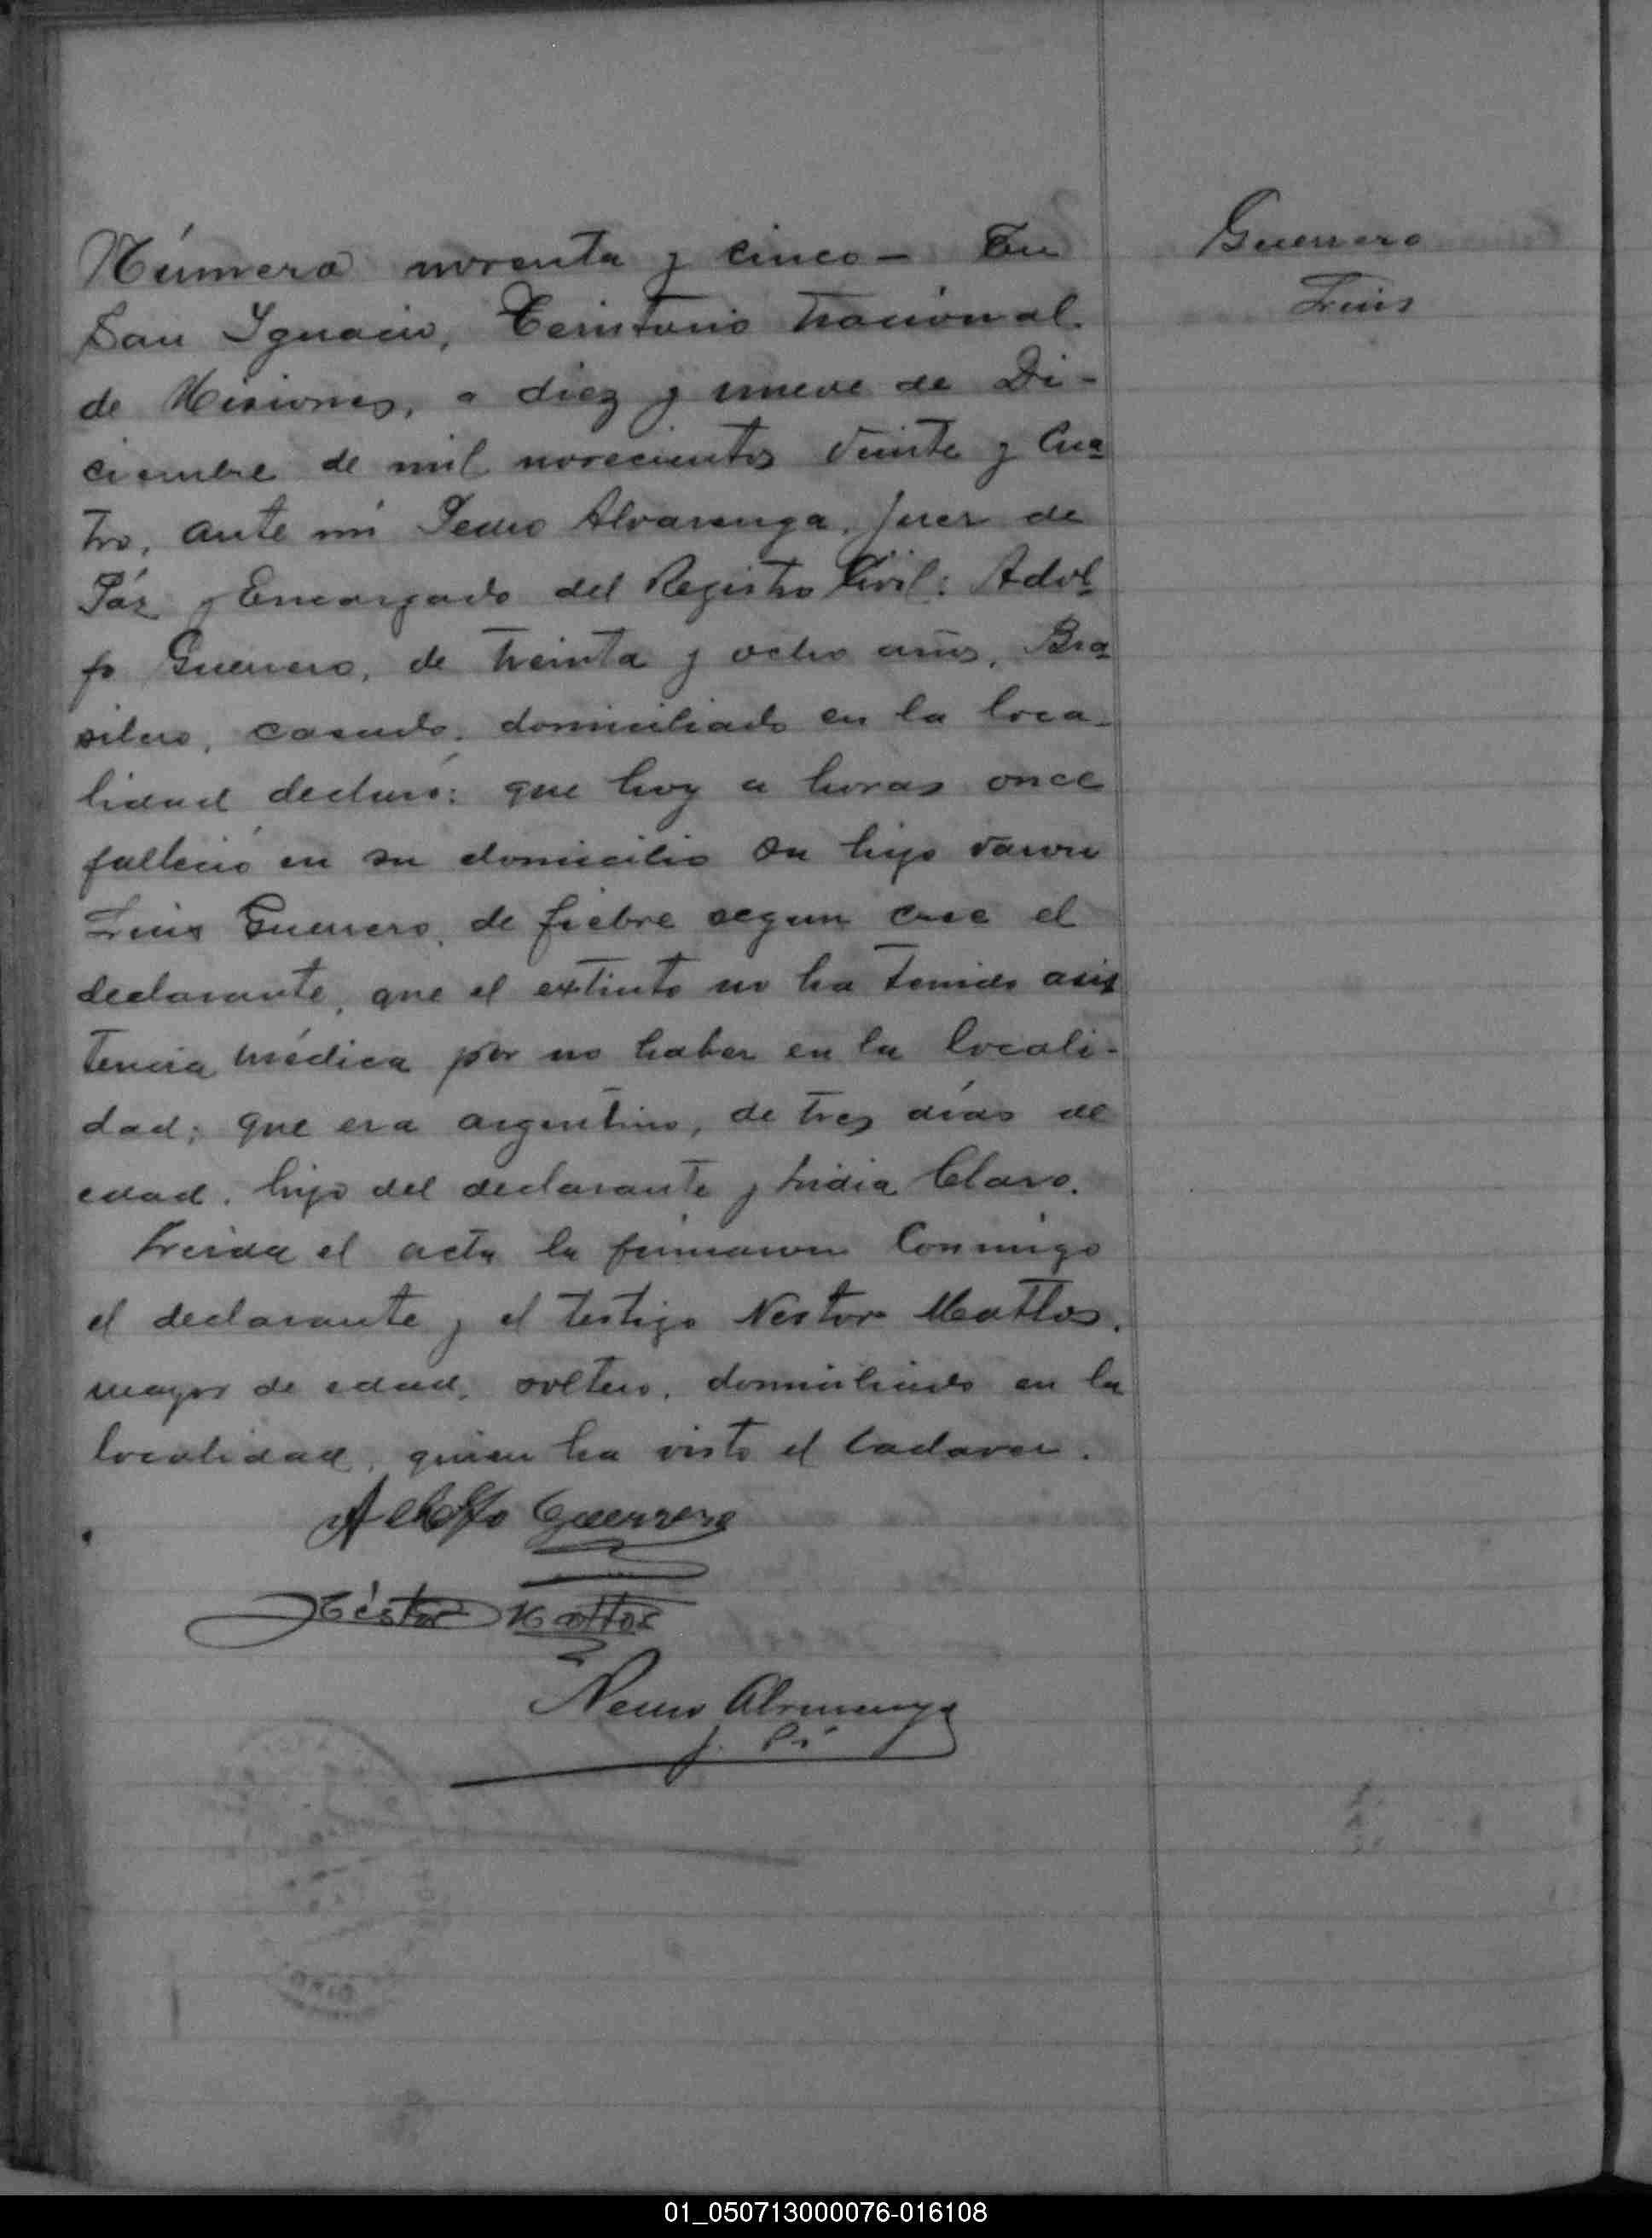 Número noventa y cinco - En
San Ignacio, Territorio Nacional
de Misiones, a diez y nueve de Di-
ciembre de mil novecientos veinte y cua
tro, ante mi Pedro Alvarenga, Juez de
Páz y Encargado del Registro Civil: Adol
fo Guerrero, de treinta y ocho años, Bra
silero, casado, domiciliado en la loca-
lidad declaró: que hoy a horas once
falleció en su domicilio su hijo varon
Luis Guerrero, de fiebre segun cree el
declarante, que el extinto no ha tenido asis
tencia médica por no haber en la locali-
dad; que era argentino, de tres días de
edad, hijo del declarante y Lidia Claro.
Leida el acta la firmaron conmigo
el declarante y el testigo Nestor Mattos,
mayor de edad, soltero, domiciliado en la
localidad, quien ha visto el cadaver.
Adolfo Guerrero
Néstor Mattos
Pedro Alvarenga
J. P.
Guerrero
Luis
01_050713000076-016108